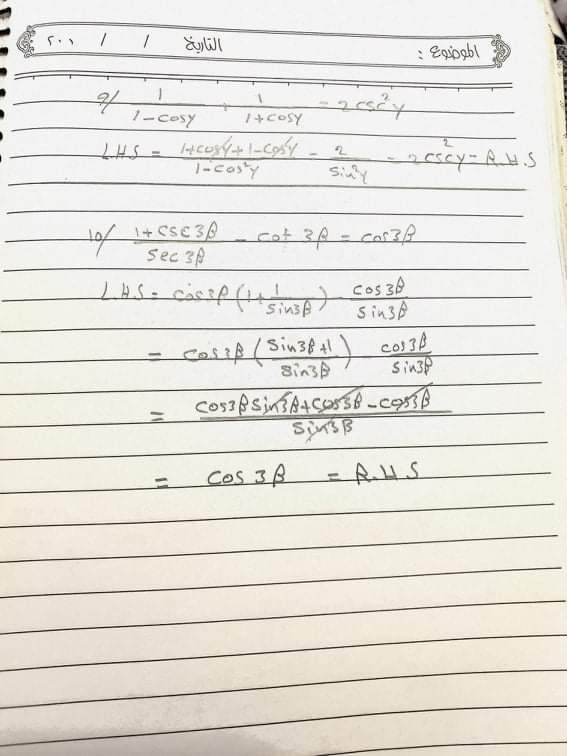 الموضوع : التاريخ / / ٢٠٠
9/ 1/(1-cosy) + 1/(1+cosy) = 2csc²y
L.H.S = (1+cosy+1-cosy)/(1-cos²y) = 2/sin²y = 2csc²y = R.H.S
10/ (1+csc3β)/sec3β - cot 3β = cos3β
L.H.S = cos3β (1+1/sin3β) - cos3β/sin3β
= cos3β (sin3β+1/sin3β) - cos3β/sin3β
= (cos3β sin3β+cos3β-cos3β)/sin3β
= cos 3β = R.H.S